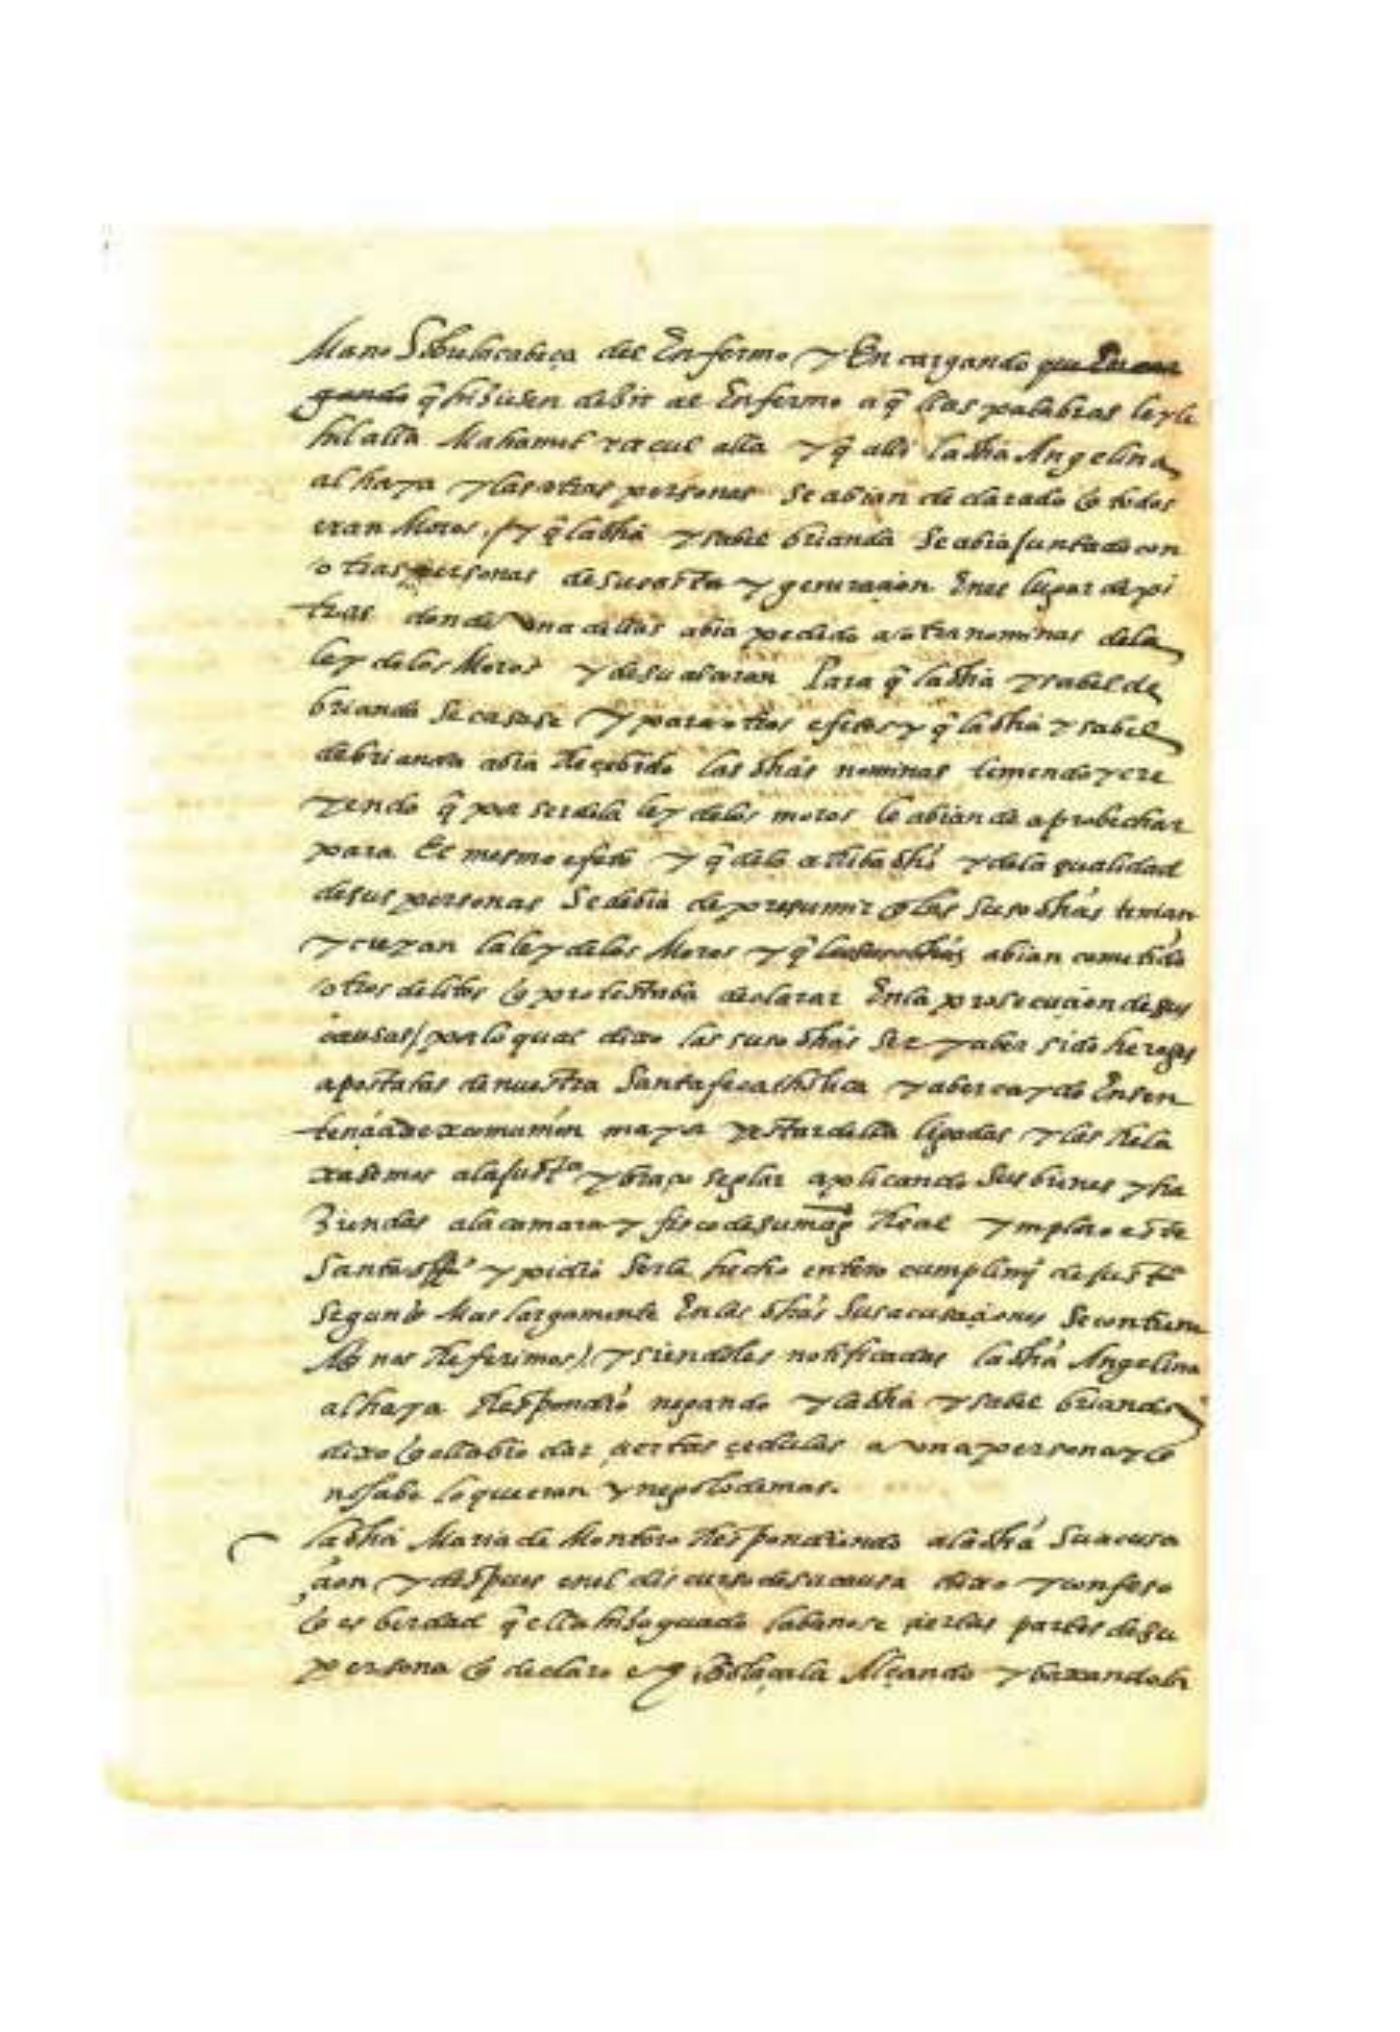 Mano Sobre la cabeça del Enfermo y En cargando que En car
gando q̃ hiziesen dezir al Enfermo aq̃llas palabras leyle
hilalla Mahamet raçul alla y q̃ alli la dhã Angelina
alhaya y las otras personas se abian declarado q̃ todos
eran Moros / y q̃ la dhã ysabel brianda se abia juntado con
otras personas de su casta y generaçion En el lugar de pi
tras donde Una dellas abia pedido a otra nominas de la
ley de los Moros y de su alcoran Para q̃ la dhã ysabel de
brianda se casase y para otros efetos y q̃ la dhã ysabel
de brianda abia Reçebido las dhãs nominas teniendo y cre
yendo q̃ por ser de la ley de los moros le abian de aprobechar
para El mesmo efeto y q̃ de lo arriba dhõ y de la qualidad
de sus personas Se debia de presumir q̃ las suso dhãs tenian
y creyan la ley de los Moros y q̃ las suso dhãs abian cometido
otros delitos q̃ protestaba declarar En la prosecuçion de sus
causas / por lo qual dixo las suso dhãs ser y aber sido hereges
apostatas de nuestra Santa fe catholica y aber caydo En sen
tençia de excomunion mayor y estar della ligadas y las Rela
xasemos a la justª y braço seglar aplicando sus bienes y ha
ziendas a la camara y fisco de su magᵈ Real ymploro este
Santo offiº y pidio Serle hecho entero cumplimᵗº de justª
Segun q̃ Mas largamente En las dhãs Sus acusaçiones Se contiene
A q̃ nos Referimos / y siendoles notificadas la dhã Angelina
alhaya Respondio negando y la dhã ysabel brianda
dixo q̃ ella bio dar çiertas çedulas a una persona y q̃
no sabe lo que eran y nego lo demas.
la dhã Maria de Montoro Respondiendo a la dhã Su acusa
çion y despues en el discurso de su causa dixo y confeso
q̃ es berdad q̃ ella hizo guado labanose çiertas partes de su
persona q̃ declaro e hizo la çala Alçando y baxandola